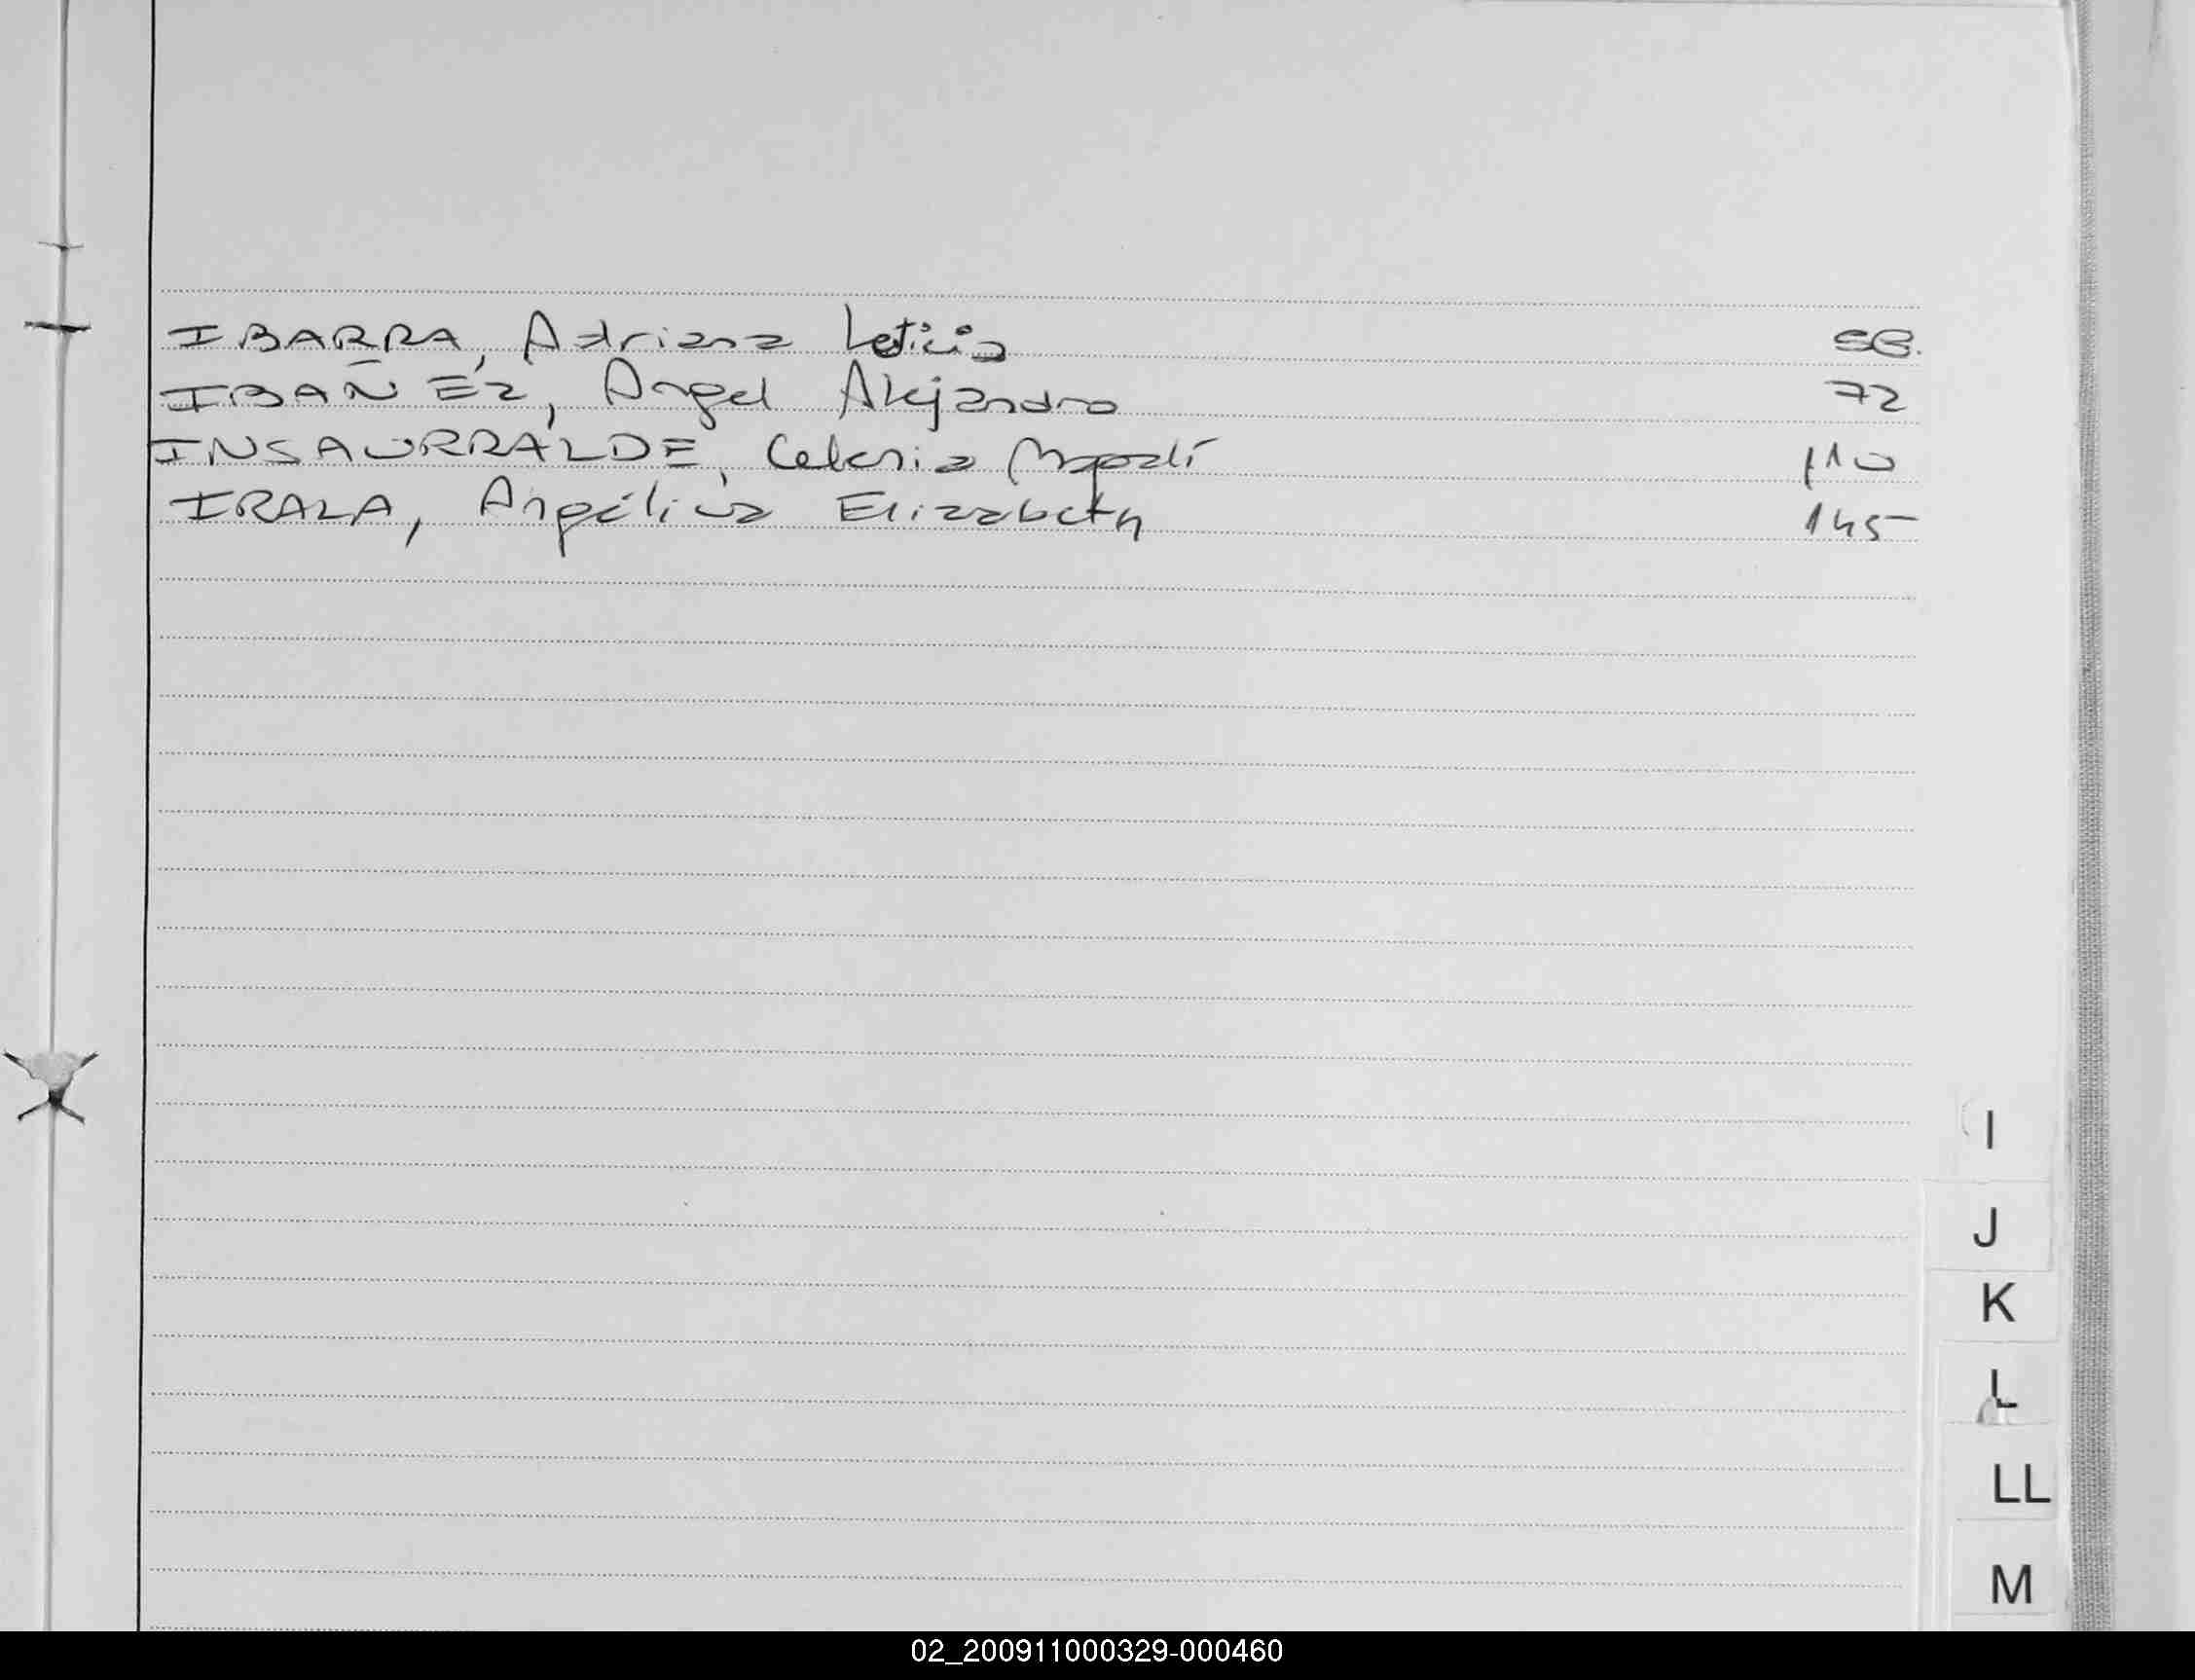 IBARRA, Adriana Leticia 56.
IBAÑEZ, Angel Alejandro 72
INSAURRALDE, Celeria Magalí 110
IRALA, Angélica Elizabeth 145
I
J
K
L
LL
M
02_200911000329-000460